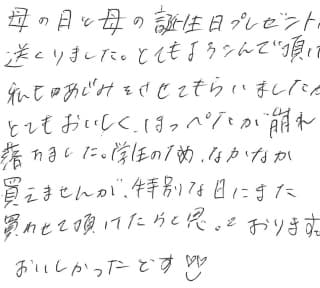 母の日と母の誕生日プレゼント
送くりました。とてもよろこんで頂け
私もあじみをさせてもらいましたが
とてもおいしく、ほっぺたが崩れ
落ちました。学生のため、なかなか
買えませんが、特別な日にまた
買わせて頂けたらと思っております。
おいしかったです